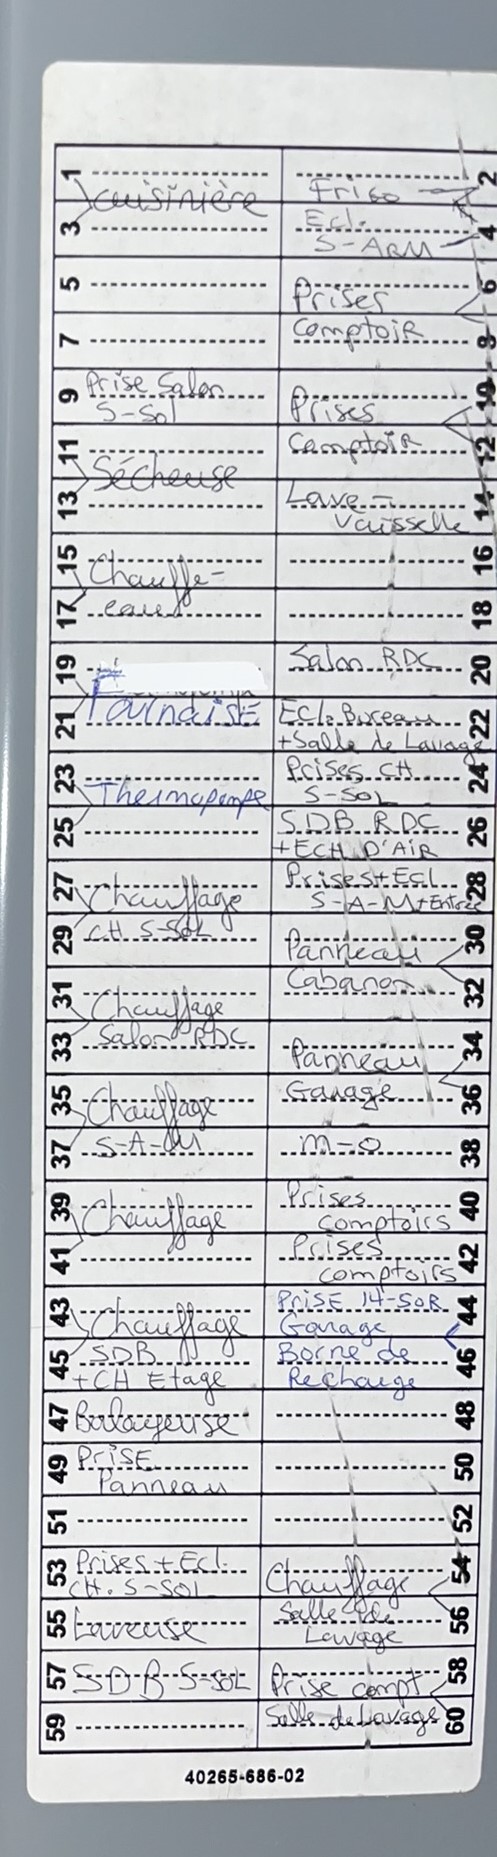 1 2
Cuisinière Frigo
3 Ecl. 4
S-ARM
5 Prises 6
7 Comptoir 8
9 Prise Salon 10
S-Sol Prises
11 Comptoir 12
Sécheuse
13 Lave- 14
Vaisselle
15 16
Chauffe-
17 eau 18
19 Salon RDC 20
21 Fournaise Ecl. Bureau 22
+Salle de Lavage
23 Prises CH 24
Thermopompe S-SOL
25 SDB RDC 26
+ECH D'AIR
27 Prises+Ecl 28
Chauffage S-A-M+Entrée
29 CH S-SOL Panneau 30
31 Cabanon 32
Chauffage
33 Salon RDC 34
Panneau
35 Chauffage Garage 36
37 S-A-M M-O 38
39 Prises 40
Chauffage comptoirs
41 Prises 42
comptoirs
43 PRISE 14-50R 44
Chauffage Garage
45 SDB Borne de 46
+CH Etage Recharge
47 Balayeuse 48
49 PRISE 50
Panneau
51 52
53 Prises+Ecl. 54
CH. S-SOL Chauffage
55 Laveuse Salle de 56
Lavage
57 SDB S-SOL Prise compt 58
59 Salle de Lavage 60
40265-686-02